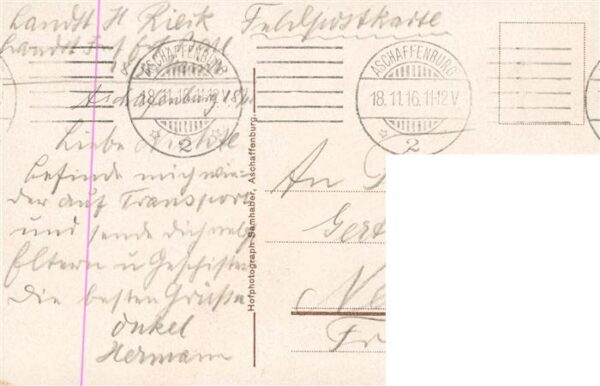 Landst H Rieck Feldpostkarte
Landst
ASCHAFFENBURG
18.11.16.11-12V
2
ASCHAFFENBURG
18.11.16.11-12V
2
Aschaffenburg
Liebe
befinde mich wie-
der auf Transport
und sende dich nebst
Eltern u Geschister
die besten Grüße
onkel
Hermann
Hofphotograph Samhaber, Aschaffenburg.
An
Gert
Ne
Fr